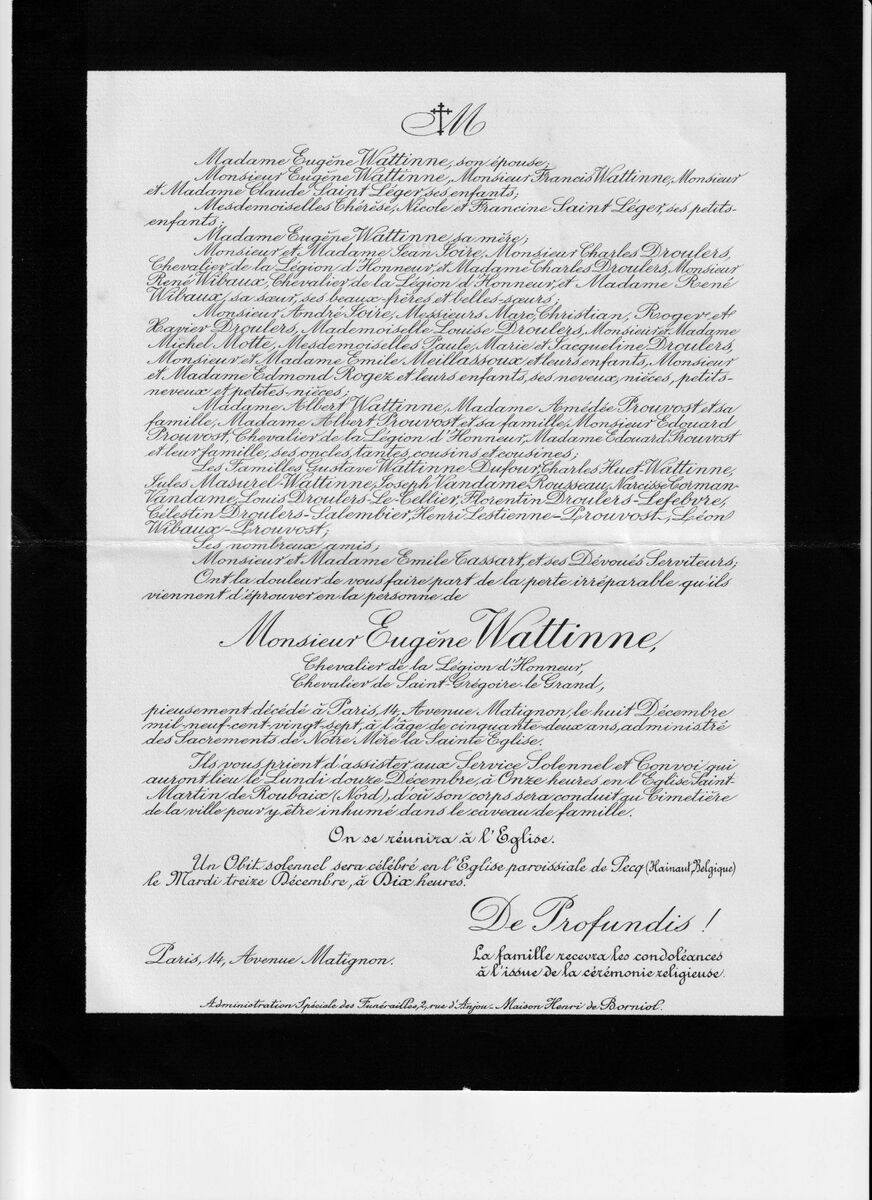 M
Madame Eugène Wattinne, son épouse;
Monsieur Eugène Wattinne, Monsieur Francis Wattinne, Monsieur
et Madame Claude Saint Léger, ses enfants;
Mesdemoiselles Thérèse, Nicole et Francine Saint Léger, ses petits-
enfants;
Madame Eugène Wattinne, sa mère;
Monsieur et Madame Jean Joire, Monsieur Charles Droulers,
Chevalier de la Légion d'Honneur, et Madame Charles Droulers, Monsieur
René Wibaux, Chevalier de la Légion d'Honneur, et Madame René
Wibaux, sa sœur, ses beaux-frères et belles-sœurs;
Monsieur André Joire, Messieurs Marc, Christian, Roger et
Xavier Droulers, Mademoiselle Louise Droulers, Monsieur et Madame
Michel Motte, Mesdemoiselles Paule, Marie et Jacqueline Droulers,
Monsieur et Madame Emile Meillassoux et leurs enfants, Monsieur
et Madame Edmond Rogez et leurs enfants, ses neveux, nièces, petits-
neveux et petites-nièces;
Madame Albert Wattinne, Madame Amédée Prouvost et sa
famille, Madame Albert Prouvost et sa famille, Monsieur Edouard
Prouvost, Chevalier de la Légion d'Honneur, Madame Edouard Prouvost
et leur famille, ses oncles, tantes, cousins et cousines;
Les Familles Gustave Wattinne-Dufour, Charles Huet-Wattinne,
Jules Masurel-Wattinne, Joseph Vandame-Rousseau, Narcisse Corman-
Vandame, Louis Droulers-Le-Tellier, Florentin Droulers-Lefebvre,
Célestin Droulers-Salembier, Henri Lestienne-Prouvost, Léon
Wibaux-Prouvost;
Ses nombreux amis;
Monsieur et Madame Emile Tassart, et ses Dévoués Serviteurs;
Ont la douleur de vous faire part de la perte irréparable qu'ils
viennent d'éprouver en la personne de
Monsieur Eugène Wattinne,
Chevalier de la Légion d'Honneur,
Chevalier de Saint-Grégoire-le-Grand,
pieusement décédé à Paris, 14, Avenue Matignon, le huit Décembre
mil-neuf-cent-vingt-sept, à l'âge de cinquante-deux ans, administré
des Sacrements de Notre Mère la Sainte Eglise.
Ils vous prient d'assister aux Service Solennel et Convoi qui
auront lieu le Lundi douze Décembre, à Onze heures en l'Eglise Saint-
Martin de Roubaix (Nord), d'où son corps sera conduit au Cimetière
de la ville pour y être inhumé dans le caveau de famille.
On se réunira à l'Eglise.
Un Obit solennel sera célébré en l'Eglise paroissiale de Pecq (Hainaut, Belgique)
le Mardi treize Décembre, à Dix heures.
De Profundis !
Paris, 14, Avenue Matignon.
La famille recevra les condoléances
à l'issue de la cérémonie religieuse.
Administration Spéciale des Funérailles, 2, rue d'Anjou - Maison Henri de Borniol.